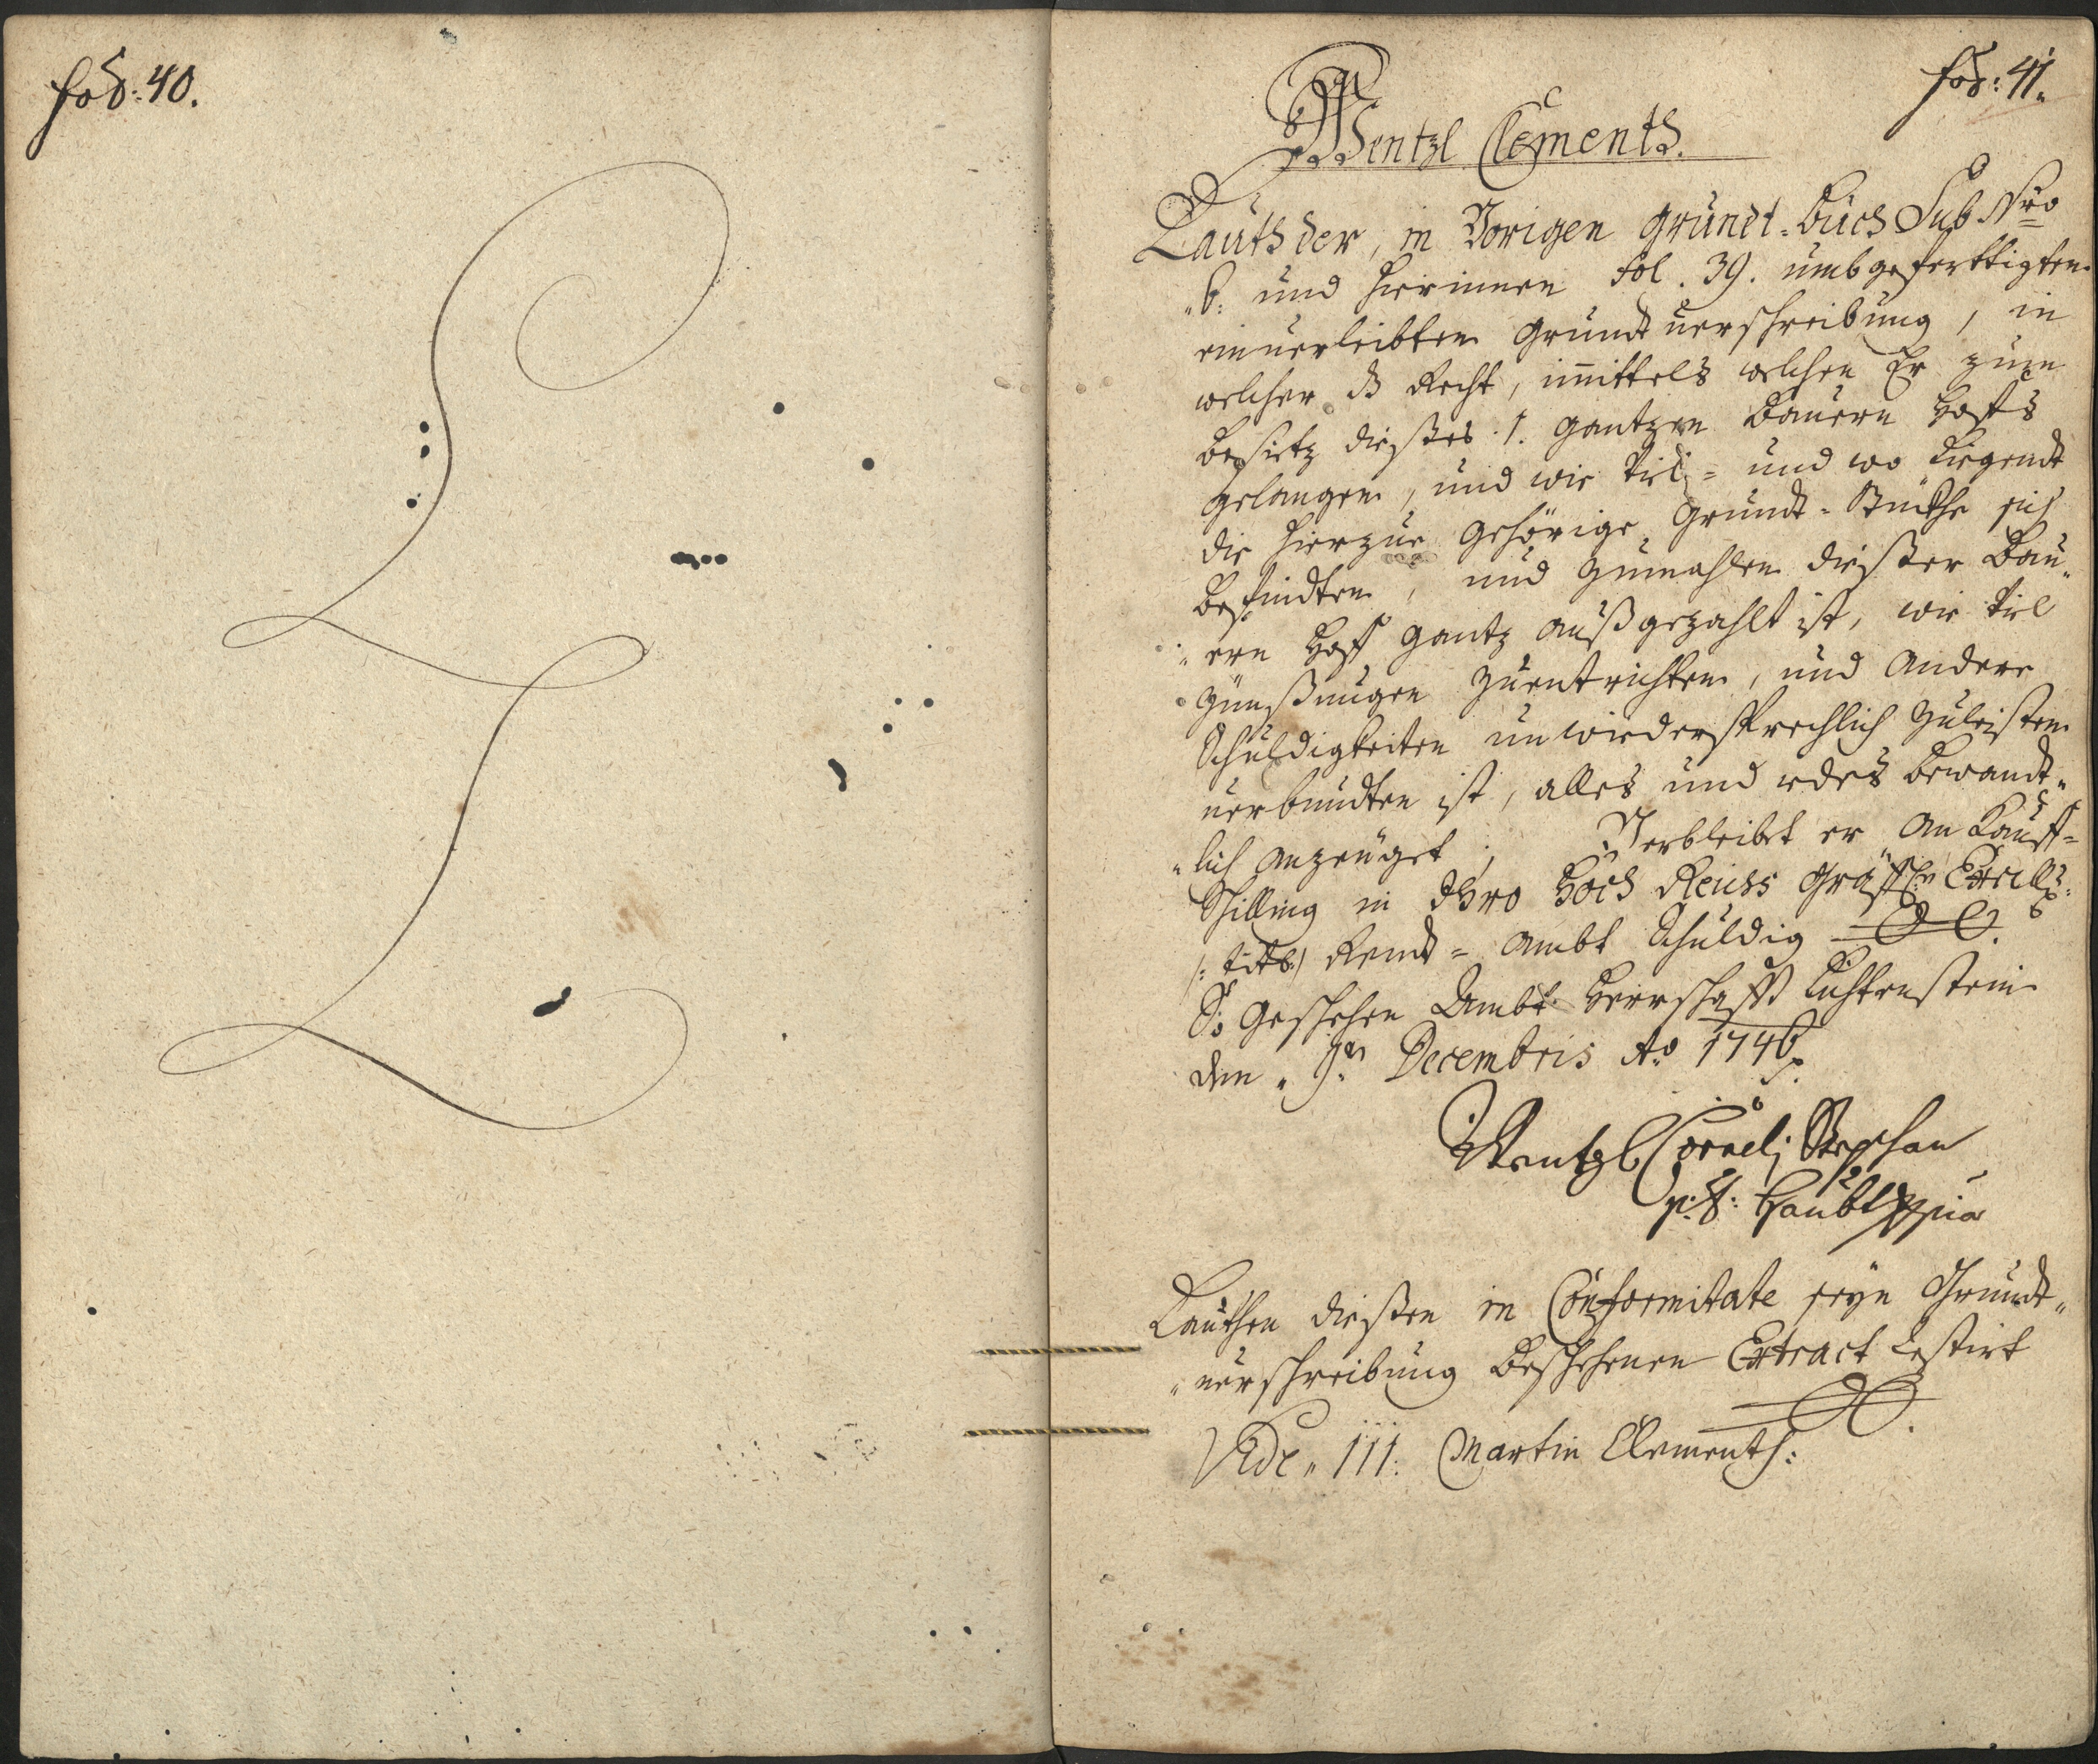 fol: 40.
fol: 41.
Wentzl Clementh.
Lauth der, in Vorigen Grundt-Buch Sub Nro
6. und hierinnen fol. 39. umbgeferttigten
einverleibten Grundtverschreibung, in
welcher dß Recht, mittels welchen Er zum
Besietz dießes 1. gantzen Bauern Hoffs
gelanget, und wie viel= und wo Liegendt
die hierzue gehörige Grundt-Stückhe sich
Befindten, und zumahlen dießer Bau„
„ern Hoff gantz außgezahlt ist, wie viel
Zünßungen zuentrichten, und andere
Schuldigkeiten unwiedersprechlich zuleisten
verbundten ist, alles und Jedes Bewandt„
„lich anzeuget; Verbleibt er an Kauff=
Schilling in Ihro Hoch Reichs Gräffl:n Excell:
/: titt: / Rendt= Ambt Schuldig
So geschehen Ambt Herrschafft Lichtenstein
den „ 9ten Decembris Ao 1746.
Wentzl Cornelj Stephan
p: t: Haubtman
Lauthen dießen in Conformitate seyn Grundt„
„verschreibung Beschehenen Extract Restirt
Vide „ 111. Martin Clementh: